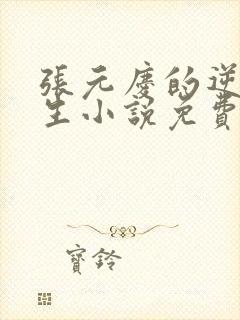 張元慶的逆
生小說免費
寶鈴